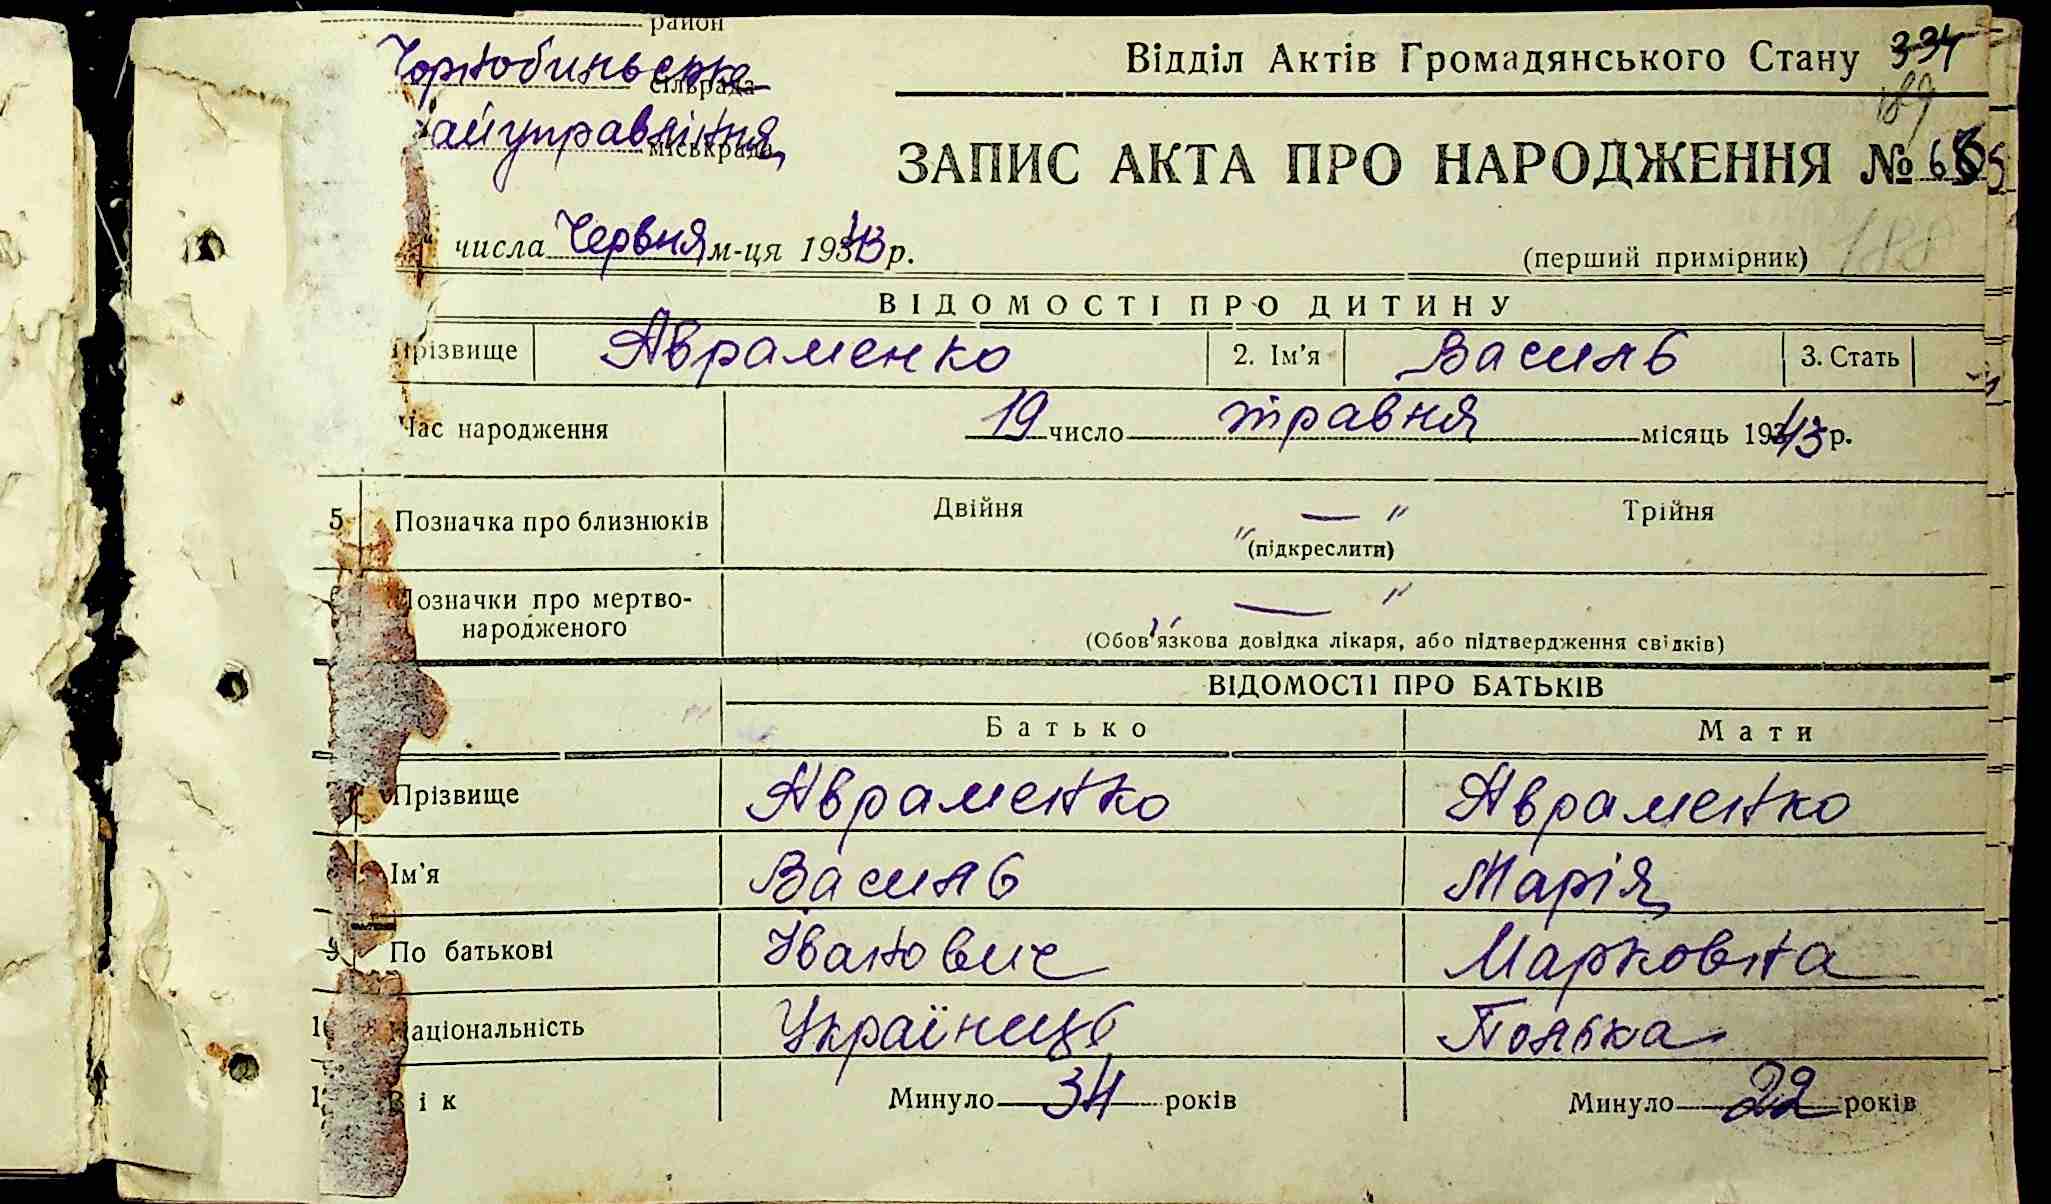 район
Чорнобильська сільрада
Райуправління міськрада
Відділ Актів Громадянського Стану 334
189
ЗАПИС АКТА ПРО НАРОДЖЕННЯ №
числа Червня м-ця 1943 р.
(перший примірник) 188
ВІДОМОСТІ ПРО ДИТИНУ
Прізвище Авраменко 2. Ім'я Василь 3. Стать
Час народження 19 число травня місяць 1943 р.
5 Позначка про близнюків Двійня — " Трійня
" (підкреслити)
Позначки про мертво-
народженого — "
(Обов'язкова довідка лікаря, або підтвердження свідків)
ВІДОМОСТІ ПРО БАТЬКІВ
Батько Мати
Прізвище Авраменко Авраменко
Ім'я Василь Марія
9 По батькові Іванович Марковна
10 Національність Українець Полька
Вік Минуло 34 років Минуло 22 років